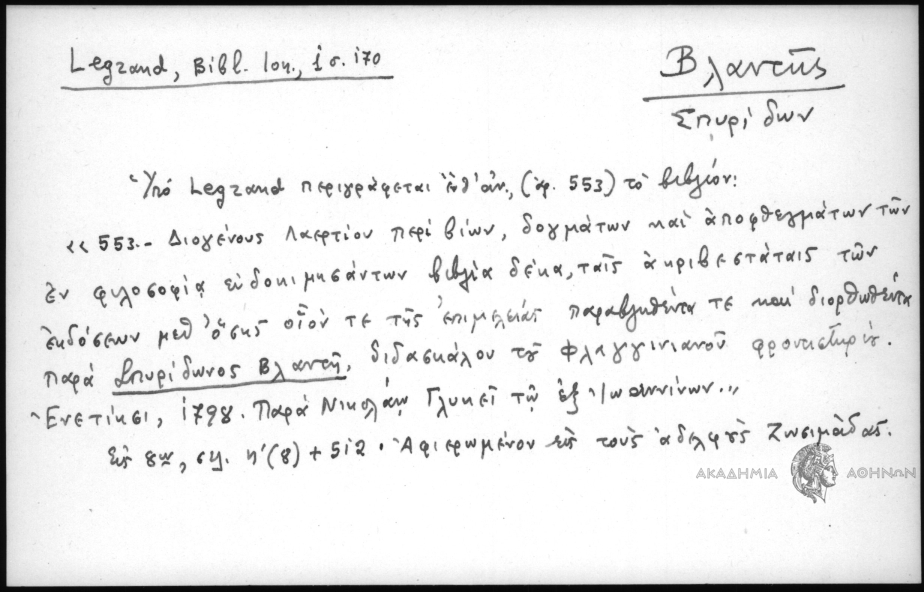 Legrand, Bibl. Ion., 1 σ. 170
Βλαντῆς
Σπυρίδων
Ὑπό Legrand περιγράφεται (ἀρ. 553) τὸ βιβλίον:
«553.- Διογένους Λαερτίου περὶ βίων, δογμάτων καὶ ἀποφθεγμάτων τῶν
ἐν φιλοσοφίᾳ εὐδοκιμησάντων βιβλία δέκα, ταῖς ἀκριβεστάταις τῶν
ἐκδόσεων μεθ' ὅσης οἷόν τε τῆς ἐπιμελείας παραβληθέντα τε καὶ διορθωθέντα
παρὰ Σπυρίδωνος Βλαντῆ, διδασκάλου τοῦ Φλαγγινιανοῦ φροντιστηρίου.
Ἐνετίησι, 1798. Παρὰ Νικολάῳ Γλυκεῖ τῷ ἐξ Ἰωαννίνων.,,
Εἰς 8ον, σελ. η'(8) + 512. Ἀφιερωμένον εἰς τοὺς ἀδελφοὺς Ζωσιμάδας.
ΑΚΑΔΗΜΙΑ ΑΘΗΝΩΝ